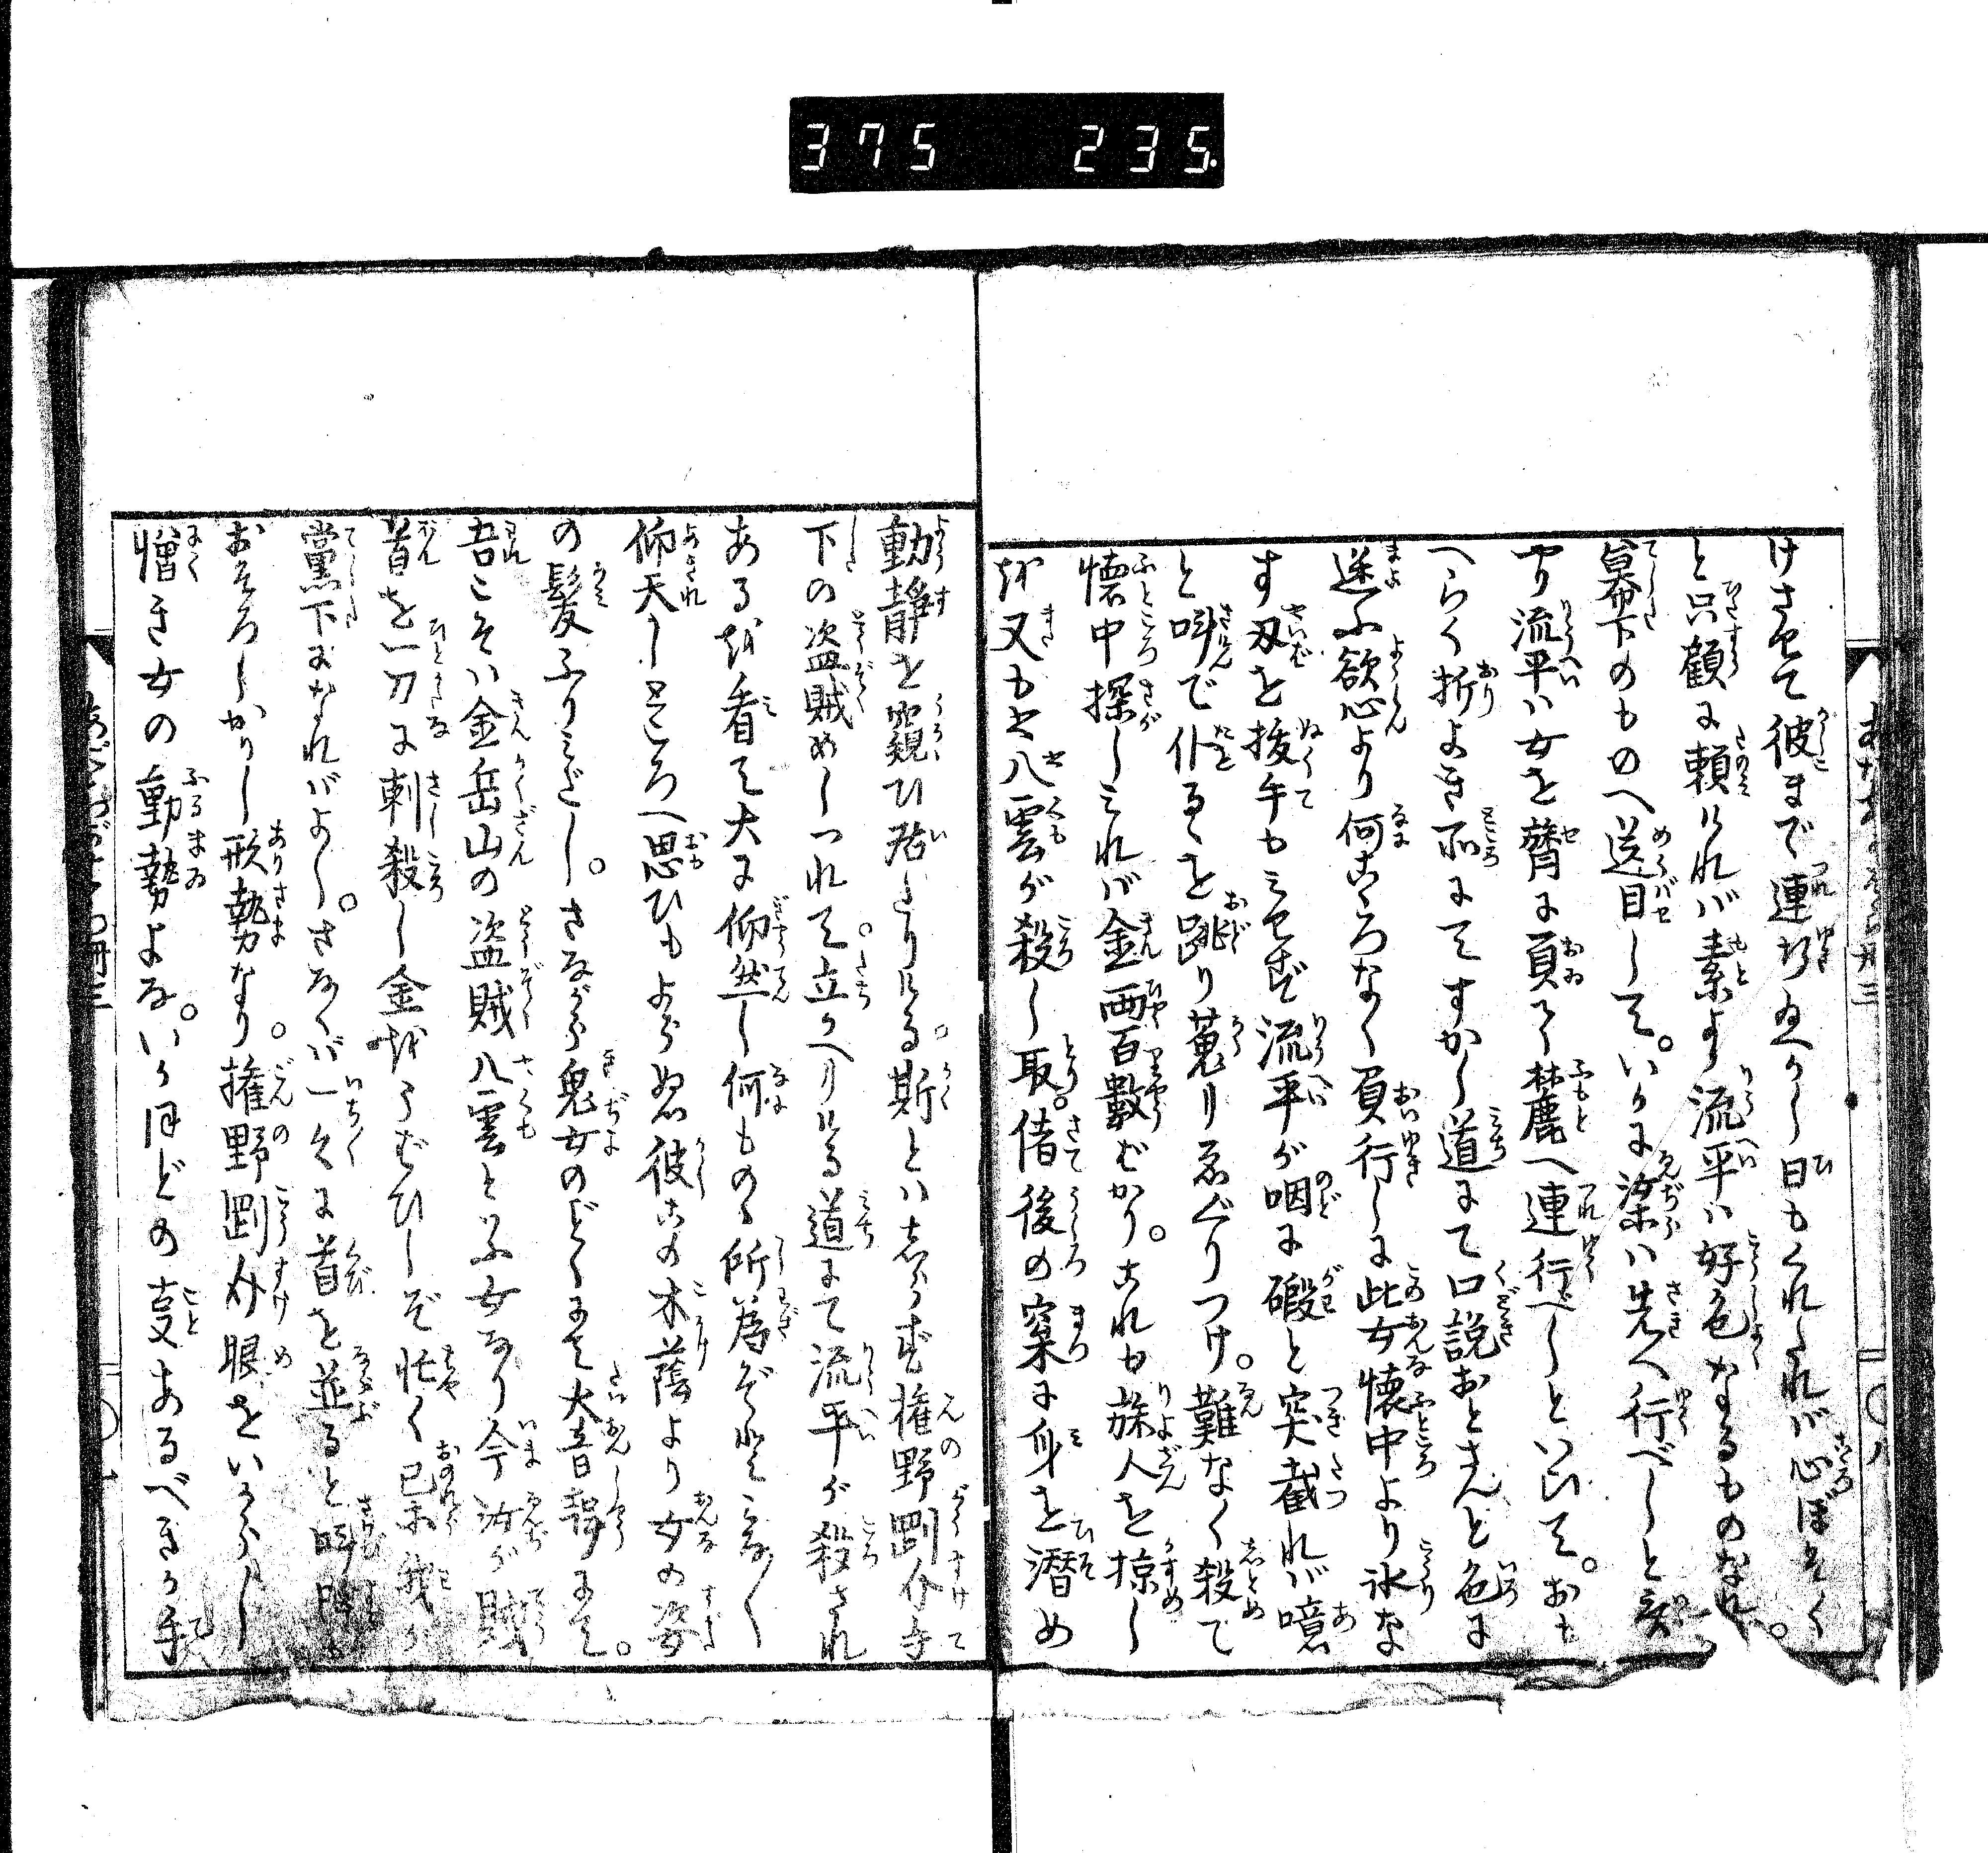 375 235.
けさせて彼まで連行ゑかし日もくれたれバ心ぼそく
と只顧に頼けれバ素より流平ハ好色なるものなれ。
幕下のものへ送目して。いかに汝ハ先へ行べしと
やり流平ハ女を膂に負ふて麓へ連行べしといひて。おも
へらく折よき所にてすかし道にて口説おとさんと色に
迷ふ欲心より何こゝろなく負行しに此女懐中より氷な
す刄を抜手もミせず流平が咽に碬と突截れバ噫
と叫んで仆るゝを跳り蒐りゑぐりつけ。難なく殺て
懐中探しミれバ金両百数ばかり。これも旅人を掠し
を又もや八雲が殺し取。偖後の窠に身を潜め
動静を窺ひ居たりける。斯とハしらず権野剛介手
下の盗賊めしつれて。立かへりける道にて流平が殺され
あるを看て大に仰然し何ものゝ所為ぞとミなく
仰天しところへ思ひもよらぬ彼この木蔭より女の姿
の髪ふりミだし。さながら鬼女のごとくにて大音声にて。
吾こそハ金岳山の盗賊八雲といふ女なり今汝が賊
首を一刀に刺殺し金をうばひしぞ忙く己等我が
党下になれバよし。さなくバ一々に首を並ると叫
おそろしかりし形勢なり。権野剛介眼をいからし
憎き女の動勢よな。いかほどの事あるべきか手